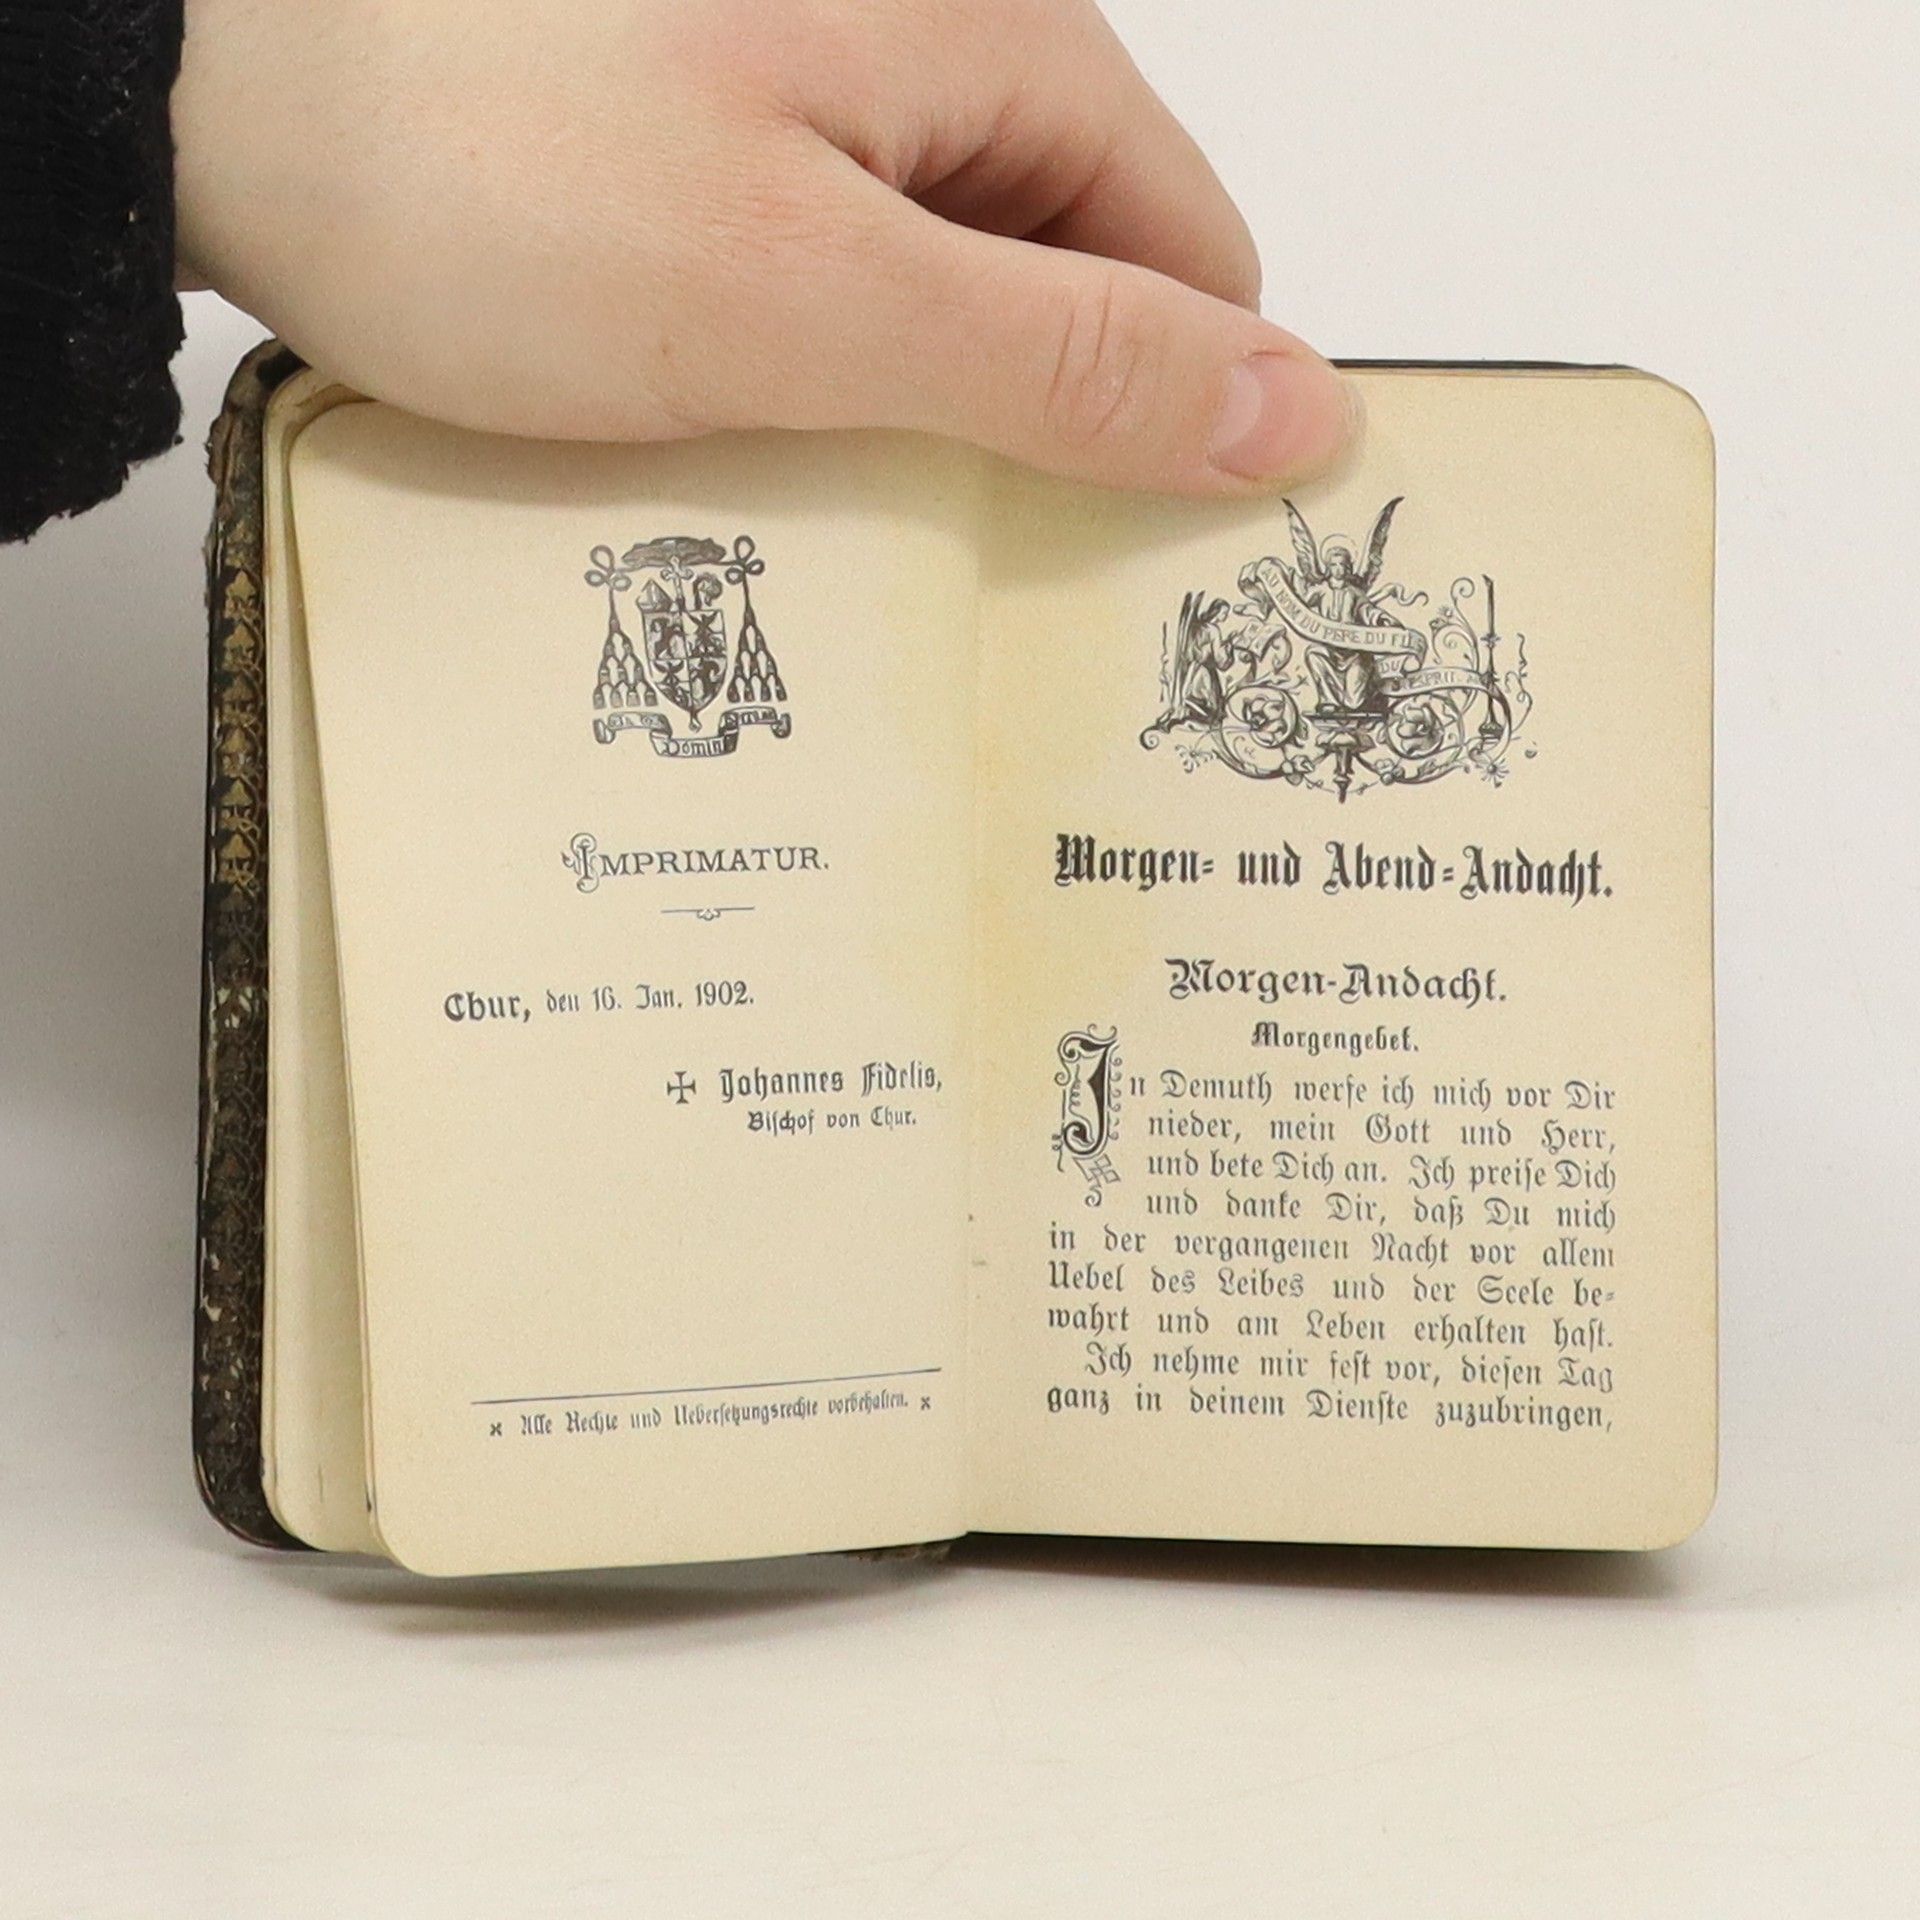 Domini
IMPRIMATUR.
Chur, den 16. Jan. 1902.
✠ Johannes Fidelis,
Bischof von Chur.
× Alle Rechte und Uebersetzungsrechte vorbehalten. ×
AU NOM DU PERE DU FILS
DU ESPRIT
Morgen- und Abend-Andacht.
Morgen-Andacht.
Morgengebet.
In Demuth werfe ich mich vor Dir
nieder, mein Gott und Herr,
und bete Dich an. Ich preise Dich
und danke Dir, daß Du mich
in der vergangenen Nacht vor allem
Uebel des Leibes und der Seele be-
wahrt und am Leben erhalten hast.
Ich nehme mir fest vor, diesen Tag
ganz in deinem Dienste zuzubringen,